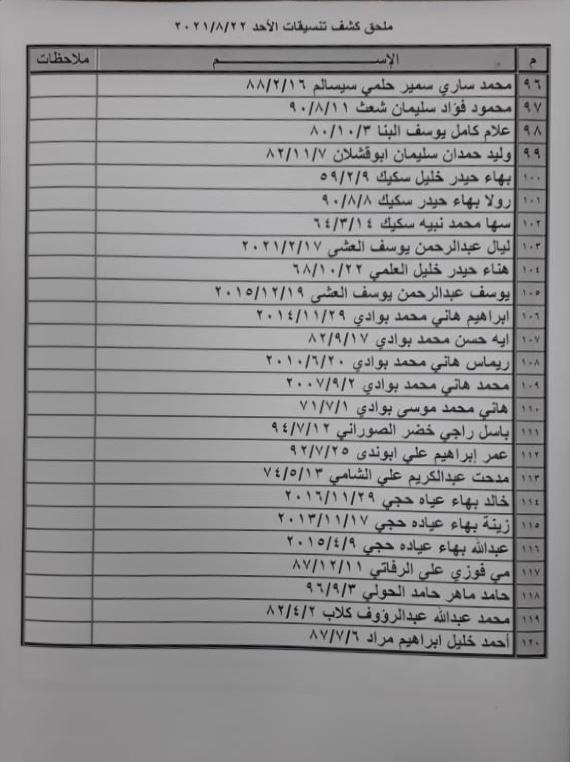 ملحق كشف تنسيقات الأحد ٢٠٢١/٨/٢٢
م الإســـــــــــــم ملاحظات
٩٦ محمد ساري سمير حلمي سيسالم ٨٨/٢/١٦
٩٧ محمود فؤاد سليمان شعث ٩٠/٨/١١
٩٨ علام كامل يوسف البنا ٨٠/١٠/٣
٩٩ وليد حمدان سليمان ابوقشلان ٨٢/١١/٧
١٠٠ بهاء حيدر خليل سكيك ٥٩/٢/٩
١٠١ رولا بهاء حيدر سكيك ٩٠/٨/٨
١٠٢ سها محمد نبيه سكيك ٦٤/٣/١٤
١٠٣ ليال عبدالرحمن يوسف العشي ٢٠٢١/٢/١٧
١٠٤ هناء حيدر خليل العلمي ٦٨/١٠/٢٢
١٠٥ يوسف عبدالرحمن يوسف العشي ٢٠١٥/١٢/١٩
١٠٦ ابراهيم هاني محمد بوادي ٢٠١٤/١١/٢٩
١٠٧ ايه حسن محمد بوادي ٨٢/٩/١٧
١٠٨ ريماس هاني محمد بوادي ٢٠١٠/٦/٢٠
١٠٩ محمد هاني محمد بوادي ٢٠٠٧/٩/٢
١١٠ هاني محمد موسى بوادي ٧١/٧/١
١١١ باسل راجي خضر الصوراني ٩٤/٧/١٢
١١٢ عمر إبراهيم علي ابوندى ٩٢/٧/٢٥
١١٣ مدحت عبدالكريم علي الشامي ٧٤/٥/١٣
١١٤ خالد بهاء عياه حجي ٢٠١٦/١١/٢٩
١١٥ زينة بهاء عياده حجي ٢٠١٣/١١/١٧
١١٦ عبدالله بهاء عياده حجي ٢٠١٥/٤/٩
١١٧ مي فوزي علي الرفاتي ٨٧/١٢/١١
١١٨ حامد ماهر حامد الحولي ٩٦/٩/٣
١١٩ محمد عبدالله عبدالرؤوف كلاب ٨٢/٤/٢
١٢٠ أحمد خليل ابراهيم مراد ٨٧/٧/٦